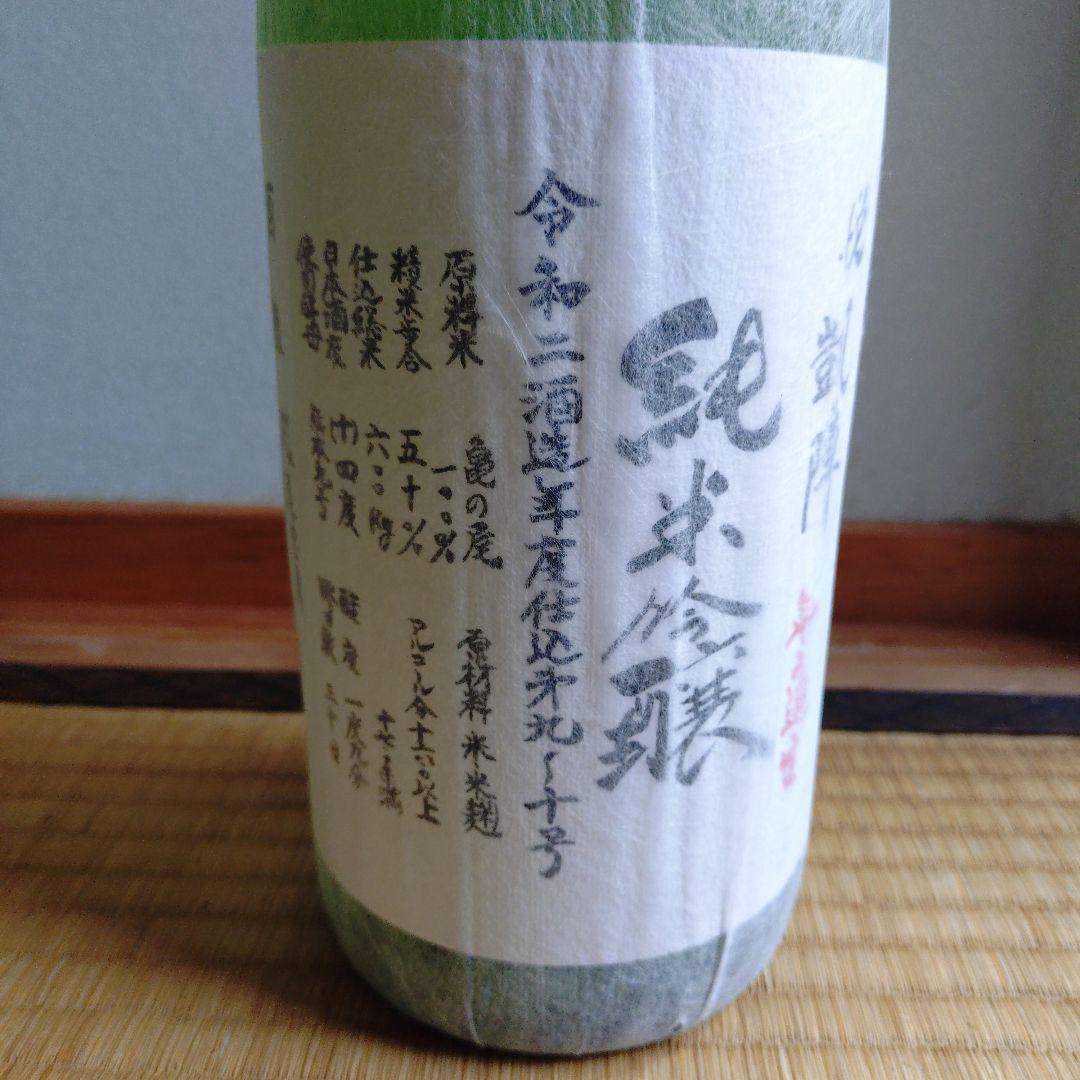 凱陣
純米吟醸
令和二酒造年度仕込第九〜十号
原料米 亀の尾 一〇〇%
精米歩合 五十%
仕込総米 六〇〇kg
日本酒度 (+)四度
原材料 米・米麹
アルコール分十六度以上
十七度未満
酸度 一度九分